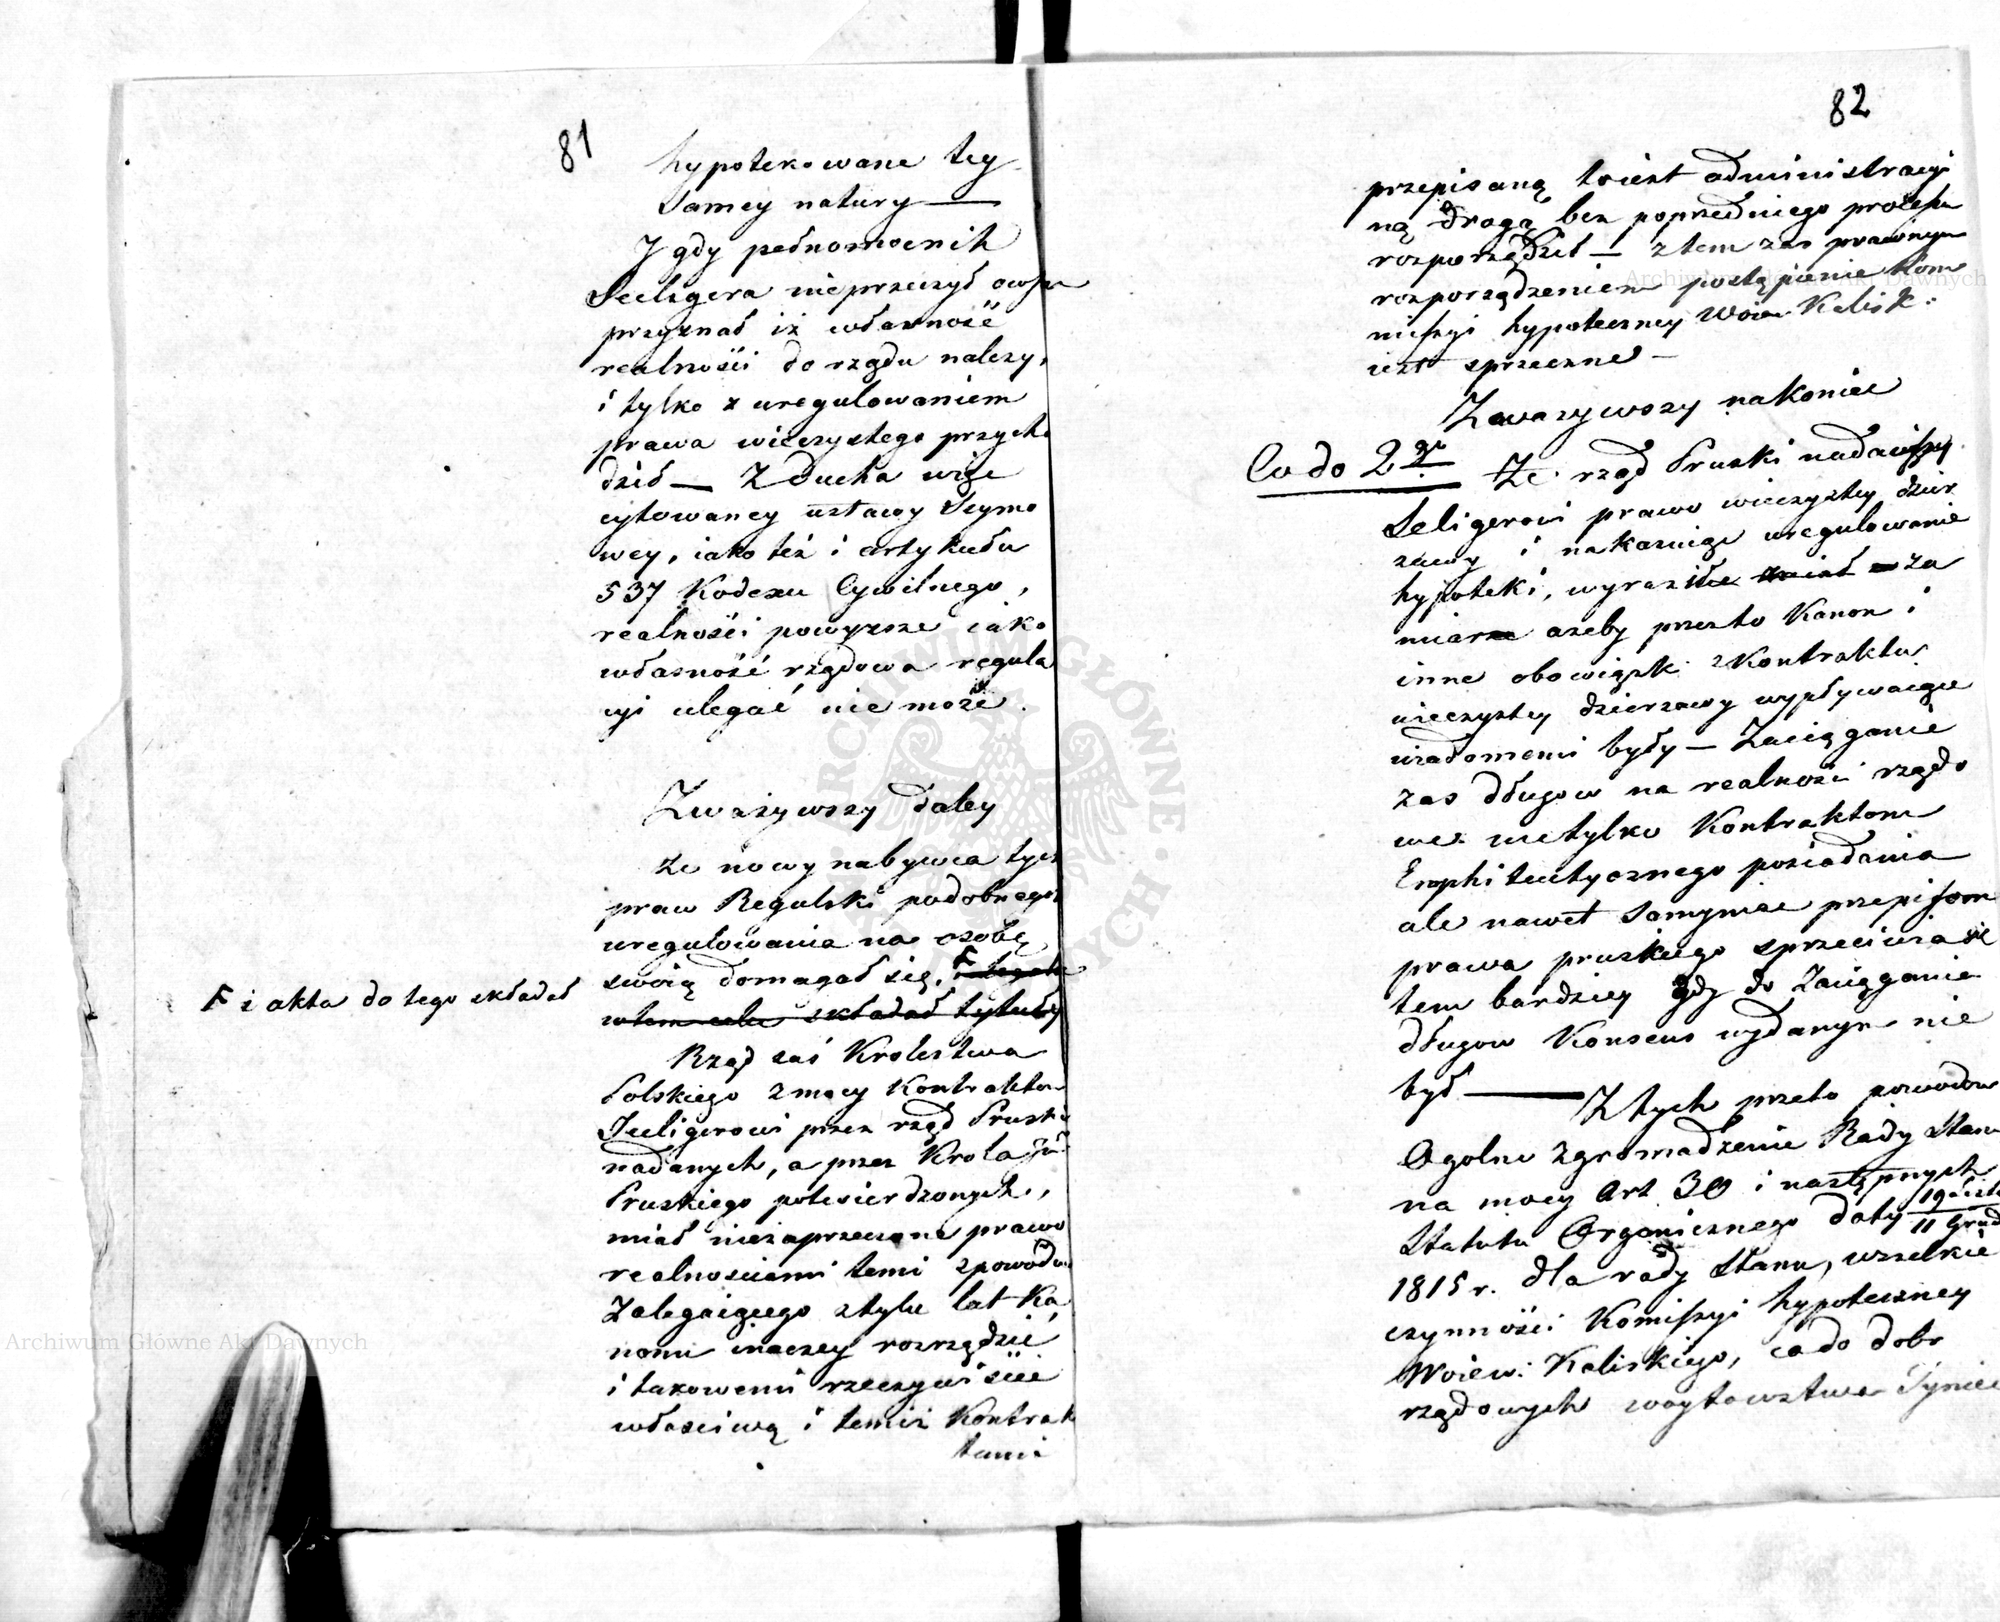 81
hypotekowane tey
Samey natury —
J gdy pełnomocnik
Seeligera nieprzeczył owszem
przyznał iż własność
realności do rządu należy,
i tylko z uregulowaniem
prawa wieczystego przycho
dził — Z Ducha więc
cytowaney ustawy Seymo
wey, iako też i artykułu
537 Kodexu Cywilnego,
realności powyższe iako
własność rządowa regula
cyi ulegać nie może.
Zważywszy daley
że nowy nabywca tych
praw Regulski podobnego
uregulowania na osobę
swoią domagał się, F
w tem celu składał tytuły
F i akta do tego składał
Rząd zaś Krolestwa
Polskiego z mocy Kontraktow
Seeligerowi przez rząd Pruski
nadanych, a przez Krola
Pruskiego potwierdzonych,
miał niezaprzeczone prawo
realnościami temi z powodu
Zalegaiącego z tylu lat Ka
nonu inaczey rozrządzić
i takowemi rzeczywiście
właściwą i temiż Kontrak
tami
82
przepisaną toiest administracyi
ną drogą bez poprzedniego processu
rozporządził — z tem zas prawnym
rozporządzeniem postąpienie Kom
missyi hypoteczney Woiew. Kalisk:
iest sprzeczne —
Zwazywszy nakoniec
Co do 2go Że rząd Pruski nadawszy
Seligerowi prawo wieczystey dzier
zawy i nakazuiąc uregulowanie
hypoteki, wyraznie miał za
miar azeby przezto Kanon i
inne obowiązki z Kontraktu
wieczystey dzierzawy wypływaiące
wiadomemi były — Zaciąganie
zas długow na realnosci rządo
we nietylko Kontraktom
Emphiteutycznego posiadania
ale nawet samymże przepisom
prawa pruskiego sprzeciwia się
tem bardziey gdy do Zaciągania
długow Konsens wydanym nie
był — Z tych przeto powodow
Ogolne Zgromadzenie Rady Stanu
na mocy Art 30 i następnych
Statutu Organicznego daty 19 / 11 Grud
1815 r. dla rady Stanu, wszelkie
czynności Komissyi hypoteczney
Woiew: Kaliskiego, co do dobr
rządowych woytowstwa Tyniec
Archiwum Główne Akt Dawnych